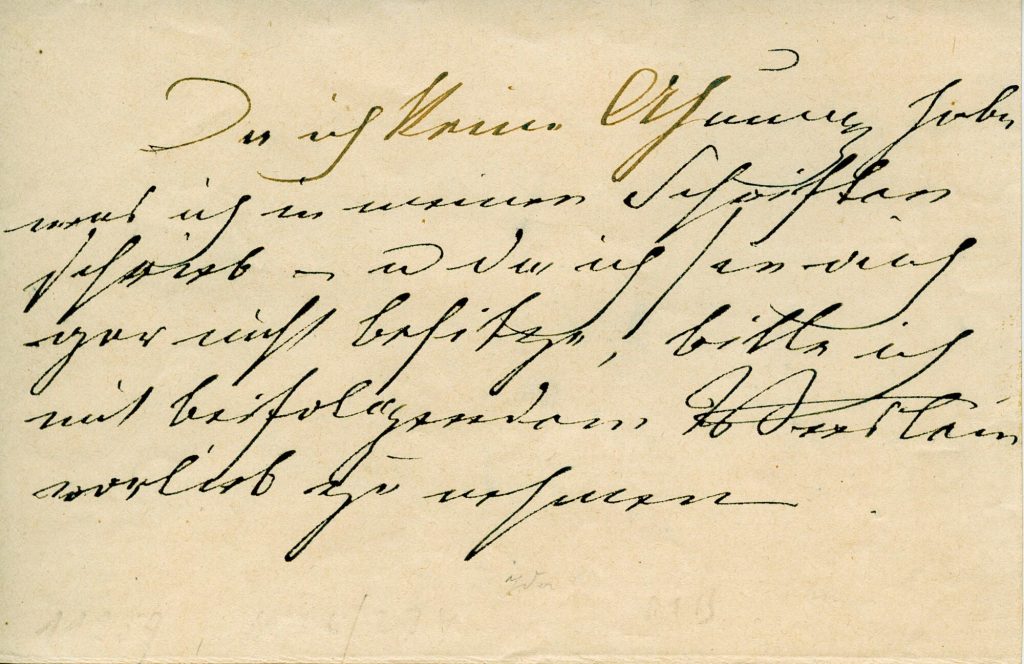 Da ich keine Ahnung habe
was ich in meinen Schriften
schrieb – u da ich sie auch
gar nicht besitze, bitte ich
mit beifolgendem Verslein
vorlieb zu nehmen